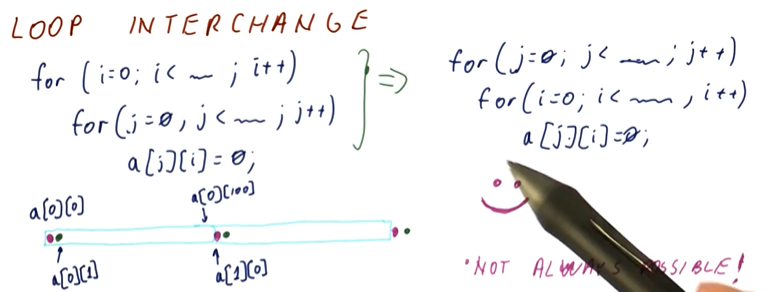 LOOP INTERCHANGE
for (i=0; i< __ ; i++)
for (j=0, j< __ ; j++)
a[j][i] = 0;
=>
for (j=0; j< __ ; j++)
for (i=0; i< __ , i++)
a[j][i]=0;
a[0][0]
a[0][100]
a[0][1]
a[1][0]
• NOT ALWAYS POSSIBLE!